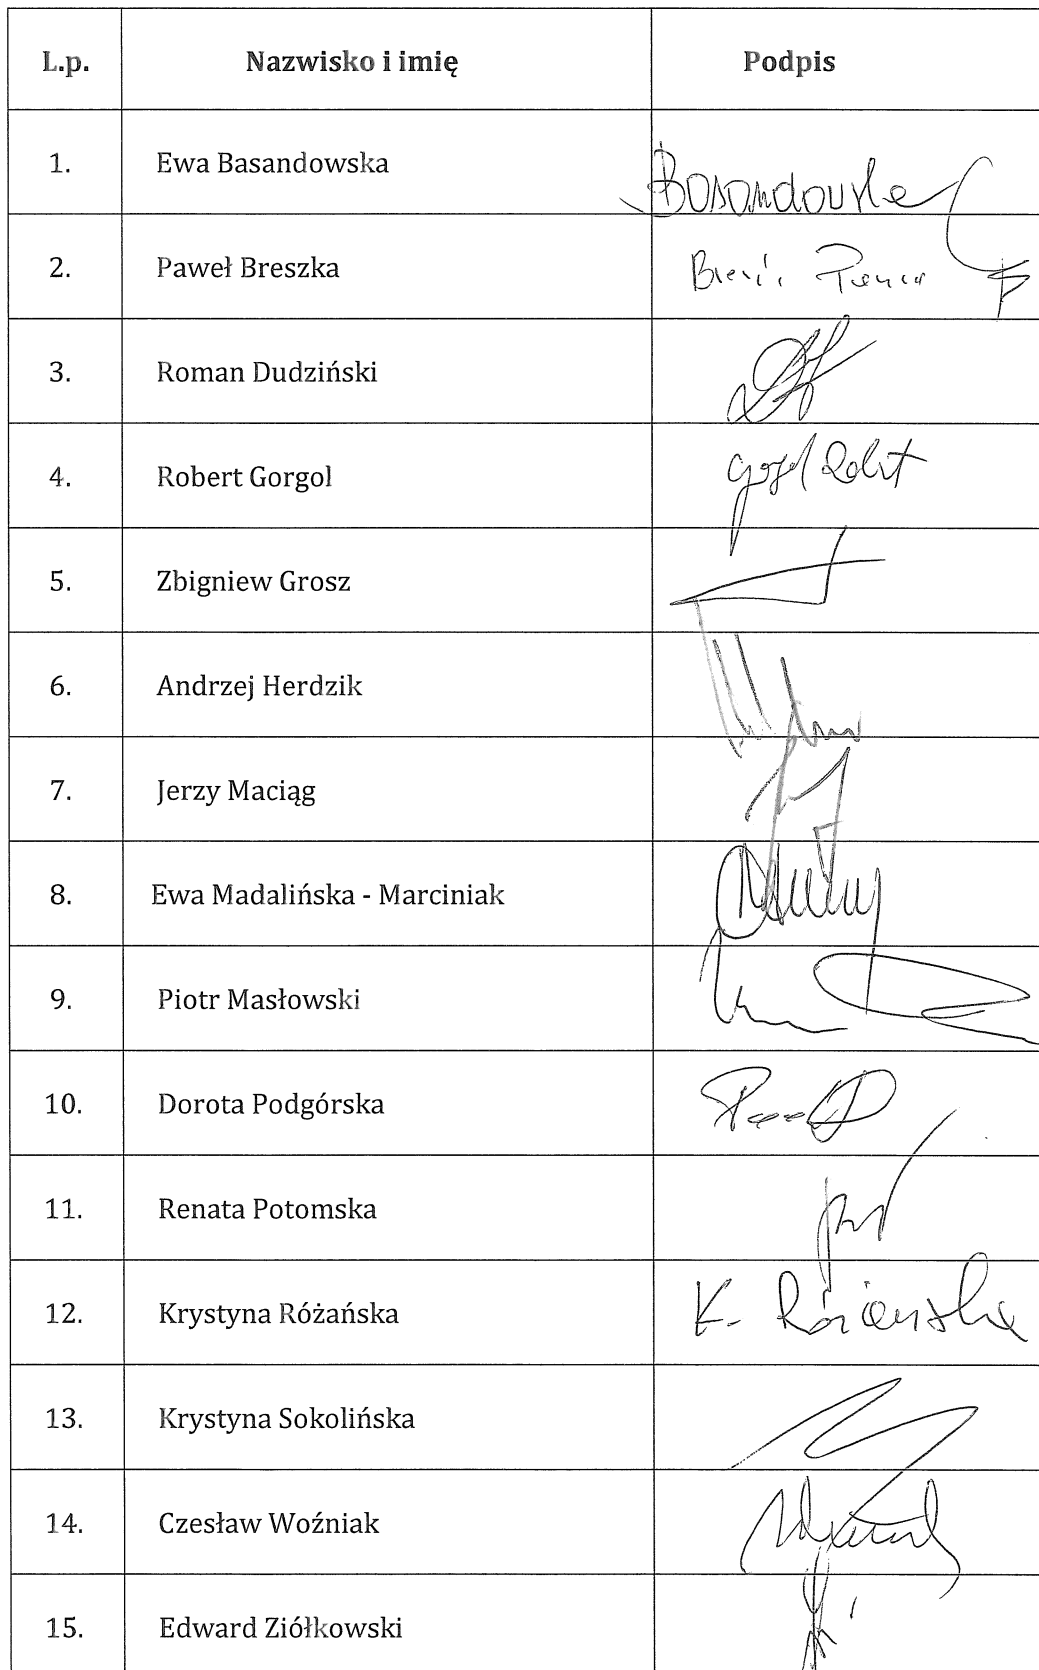 L.p. Nazwisko i imię Podpis
1. Ewa Basandowska Basandowska
2. Paweł Breszka
3. Roman Dudziński
4. Robert Gorgol
5. Zbigniew Grosz
6. Andrzej Herdzik
7. Jerzy Maciąg
8. Ewa Madalińska - Marciniak
9. Piotr Masłowski
10. Dorota Podgórska
11. Renata Potomska
12. Krystyna Różańska K. Różańska
13. Krystyna Sokolińska
14. Czesław Woźniak
15. Edward Ziółkowski